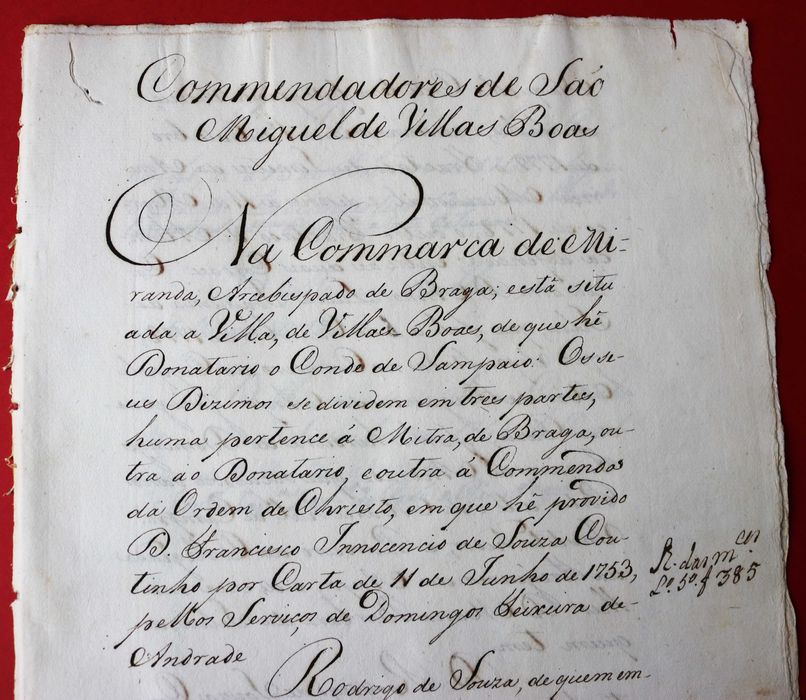 Commendadores de São
Miguel de Villas Boas
Na Commarca de Mi-
randa, Arcebispado de Braga; e está situ
ada a Villa, de Villas-Boas, de que hé
Donatario o Conde de Sampaio. Os se-
us Dizimos se dividem em tres partes,
huma pertence á Mitra, de Braga, ou-
tra ao Donatario, e outra á Commenda
da Ordem de Christo, em que hé provido
D. Francisco Innocencio de Souza Cou-
tinho por Carta de 11 de Junho de 1753,
R. das m.ces
L.º 5.º f 385
pellos Serviços de Domingos Teixeira de
Andrade
Rodrigo de Souza, de quem em-